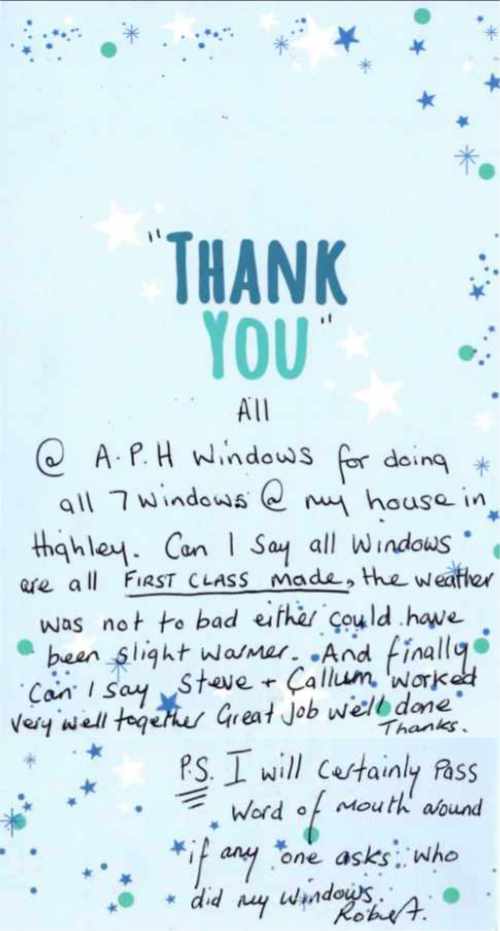 "THANK
YOU"
All
@ A.P.H Windows for doing
all 7 windows @ my house in
Highley. Can I Say all Windows
are all FIRST CLASS made, the weather
was not to bad either could have
been slight warmer. And finally
Can I say Steve + Callum worked
very well together Great Job well done
Thanks.
P.S. I will Certainly Pass
Word of Mouth around
if any one asks who
did my windows.
Robert.